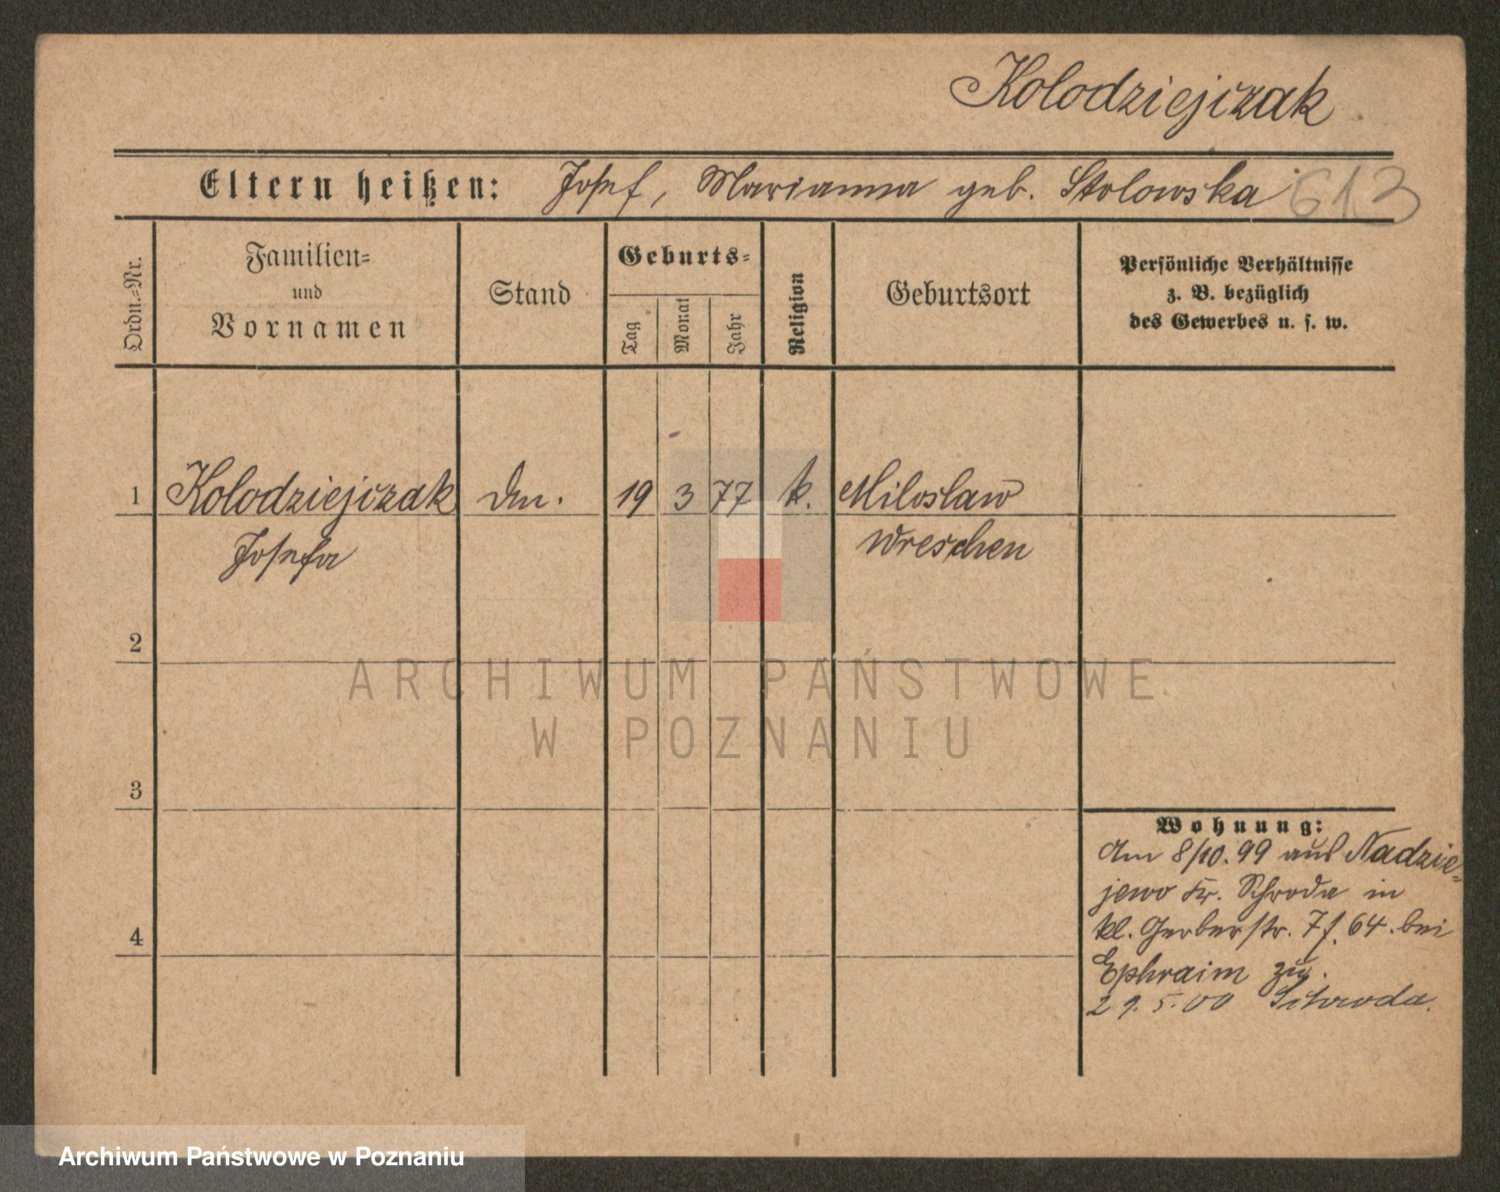 Kolodziejczak
Eltern heißen: Josef, Marianna geb. Stolowska
613
Ordn.-Nr.
Familien-
und
Vornamen
Stand
Geburts-
Tag
Monat
Jahr
Religion
Geburtsort
Persönliche Verhältnisse
z. B. bezüglich
des Gewerbes u. s. w.
1 Kolodziejczak 19 3 77 k. Miloslaw
Josefa Wreschen
2
3
4
Wohnung:
Am 8/10. 99 aus Nadzie-
jewo Kr. Schroda in
kl. Gerberstr. 7 f. 64. bei
Ephraim zu.
29.5.00 Schroda.
ARCHIWUM PAŃSTWOWE
W POZNANIU
Archiwum Państwowe w Poznaniu